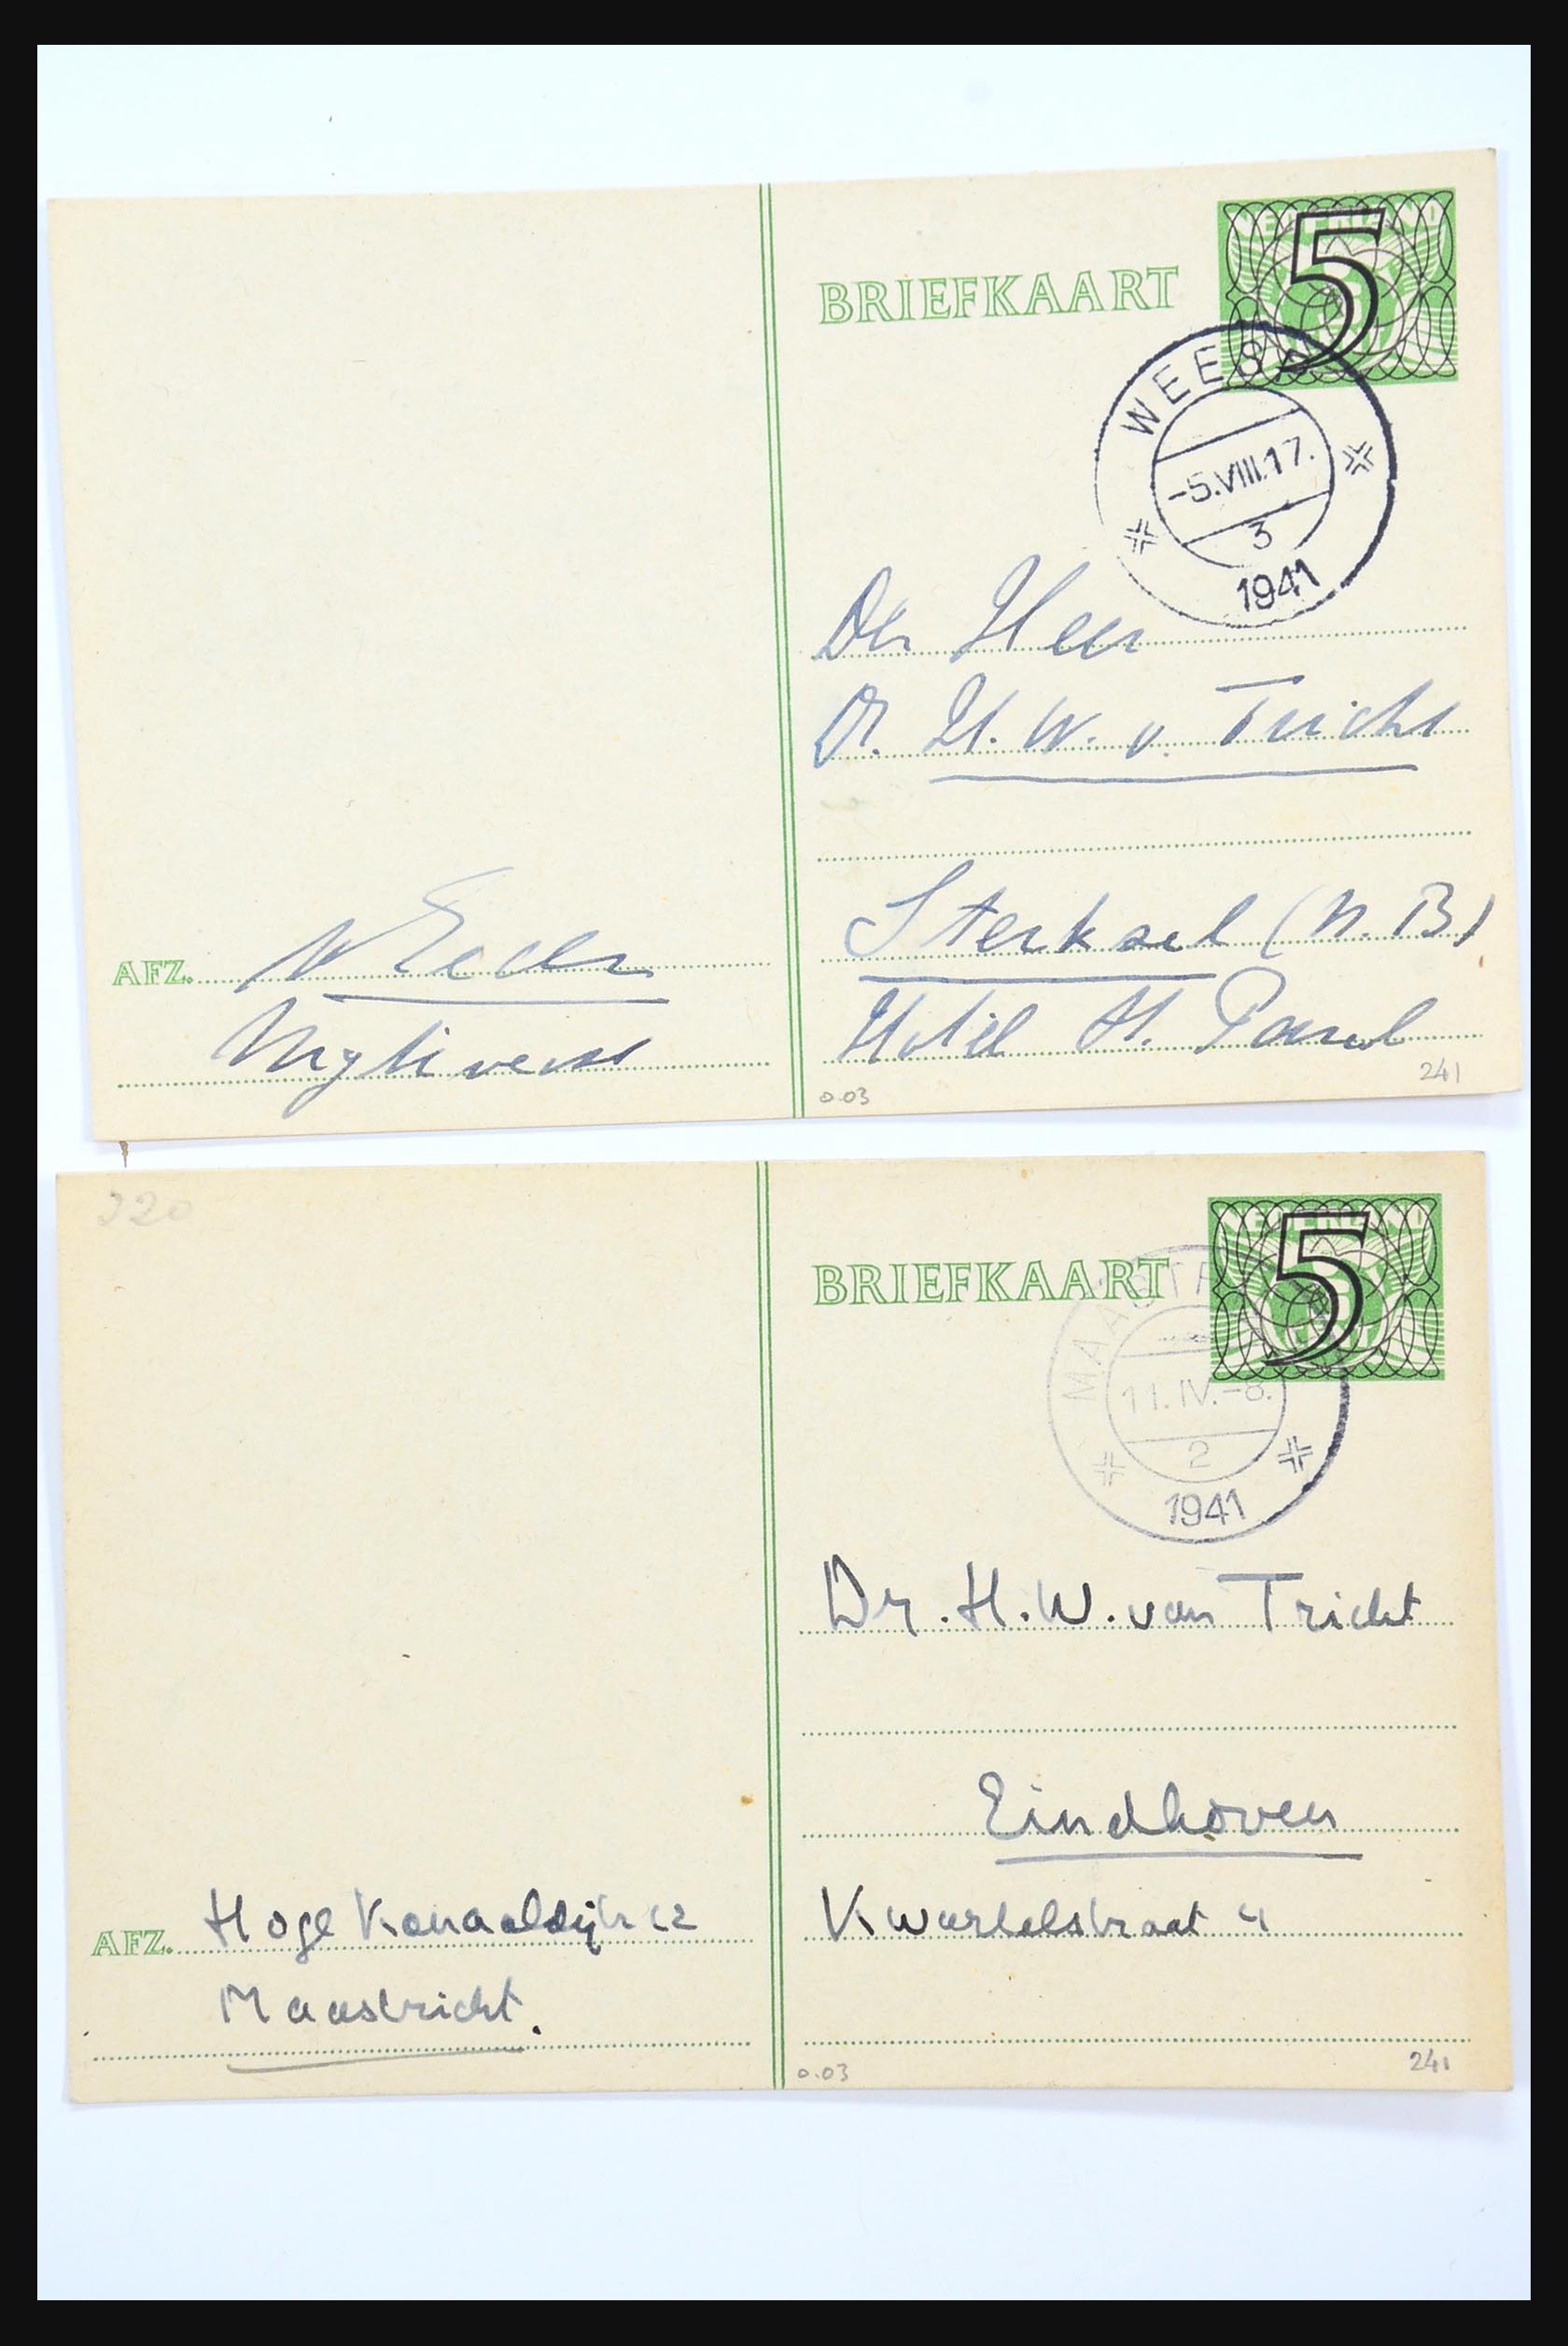 BRIEFKAART
NEDERLAND
5
WEESP
-5.VIII.17.
3
1941
Den Heer
Dr. H. W. v. Tricht
Sterksel (N.B)
Hotel St. Paul
AFZ.
0.03
241
220
BRIEFKAART
NEDERLAND
5
MAASTR
11.IV.-8.
2
1941
Dr. H. W. van Tricht
Eindhoven
Kwartelstraat 4
AFZ. Hoge Kanaaldijk 12
Maastricht.
0.03
241